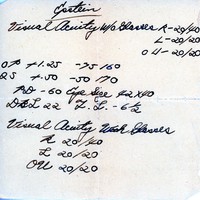 Epstein
Visual Acuity W/o Glasses R-20/40
L-20/20
OU-20/20
OD +1.25 -.75 160
OS +.50 -.50 70
PD-60 Eye Size 42x40
DBL 22 T.L. - 6 1/2
Visual Acuity With Glasses
R 20/40
L 20/20
OU 20/20